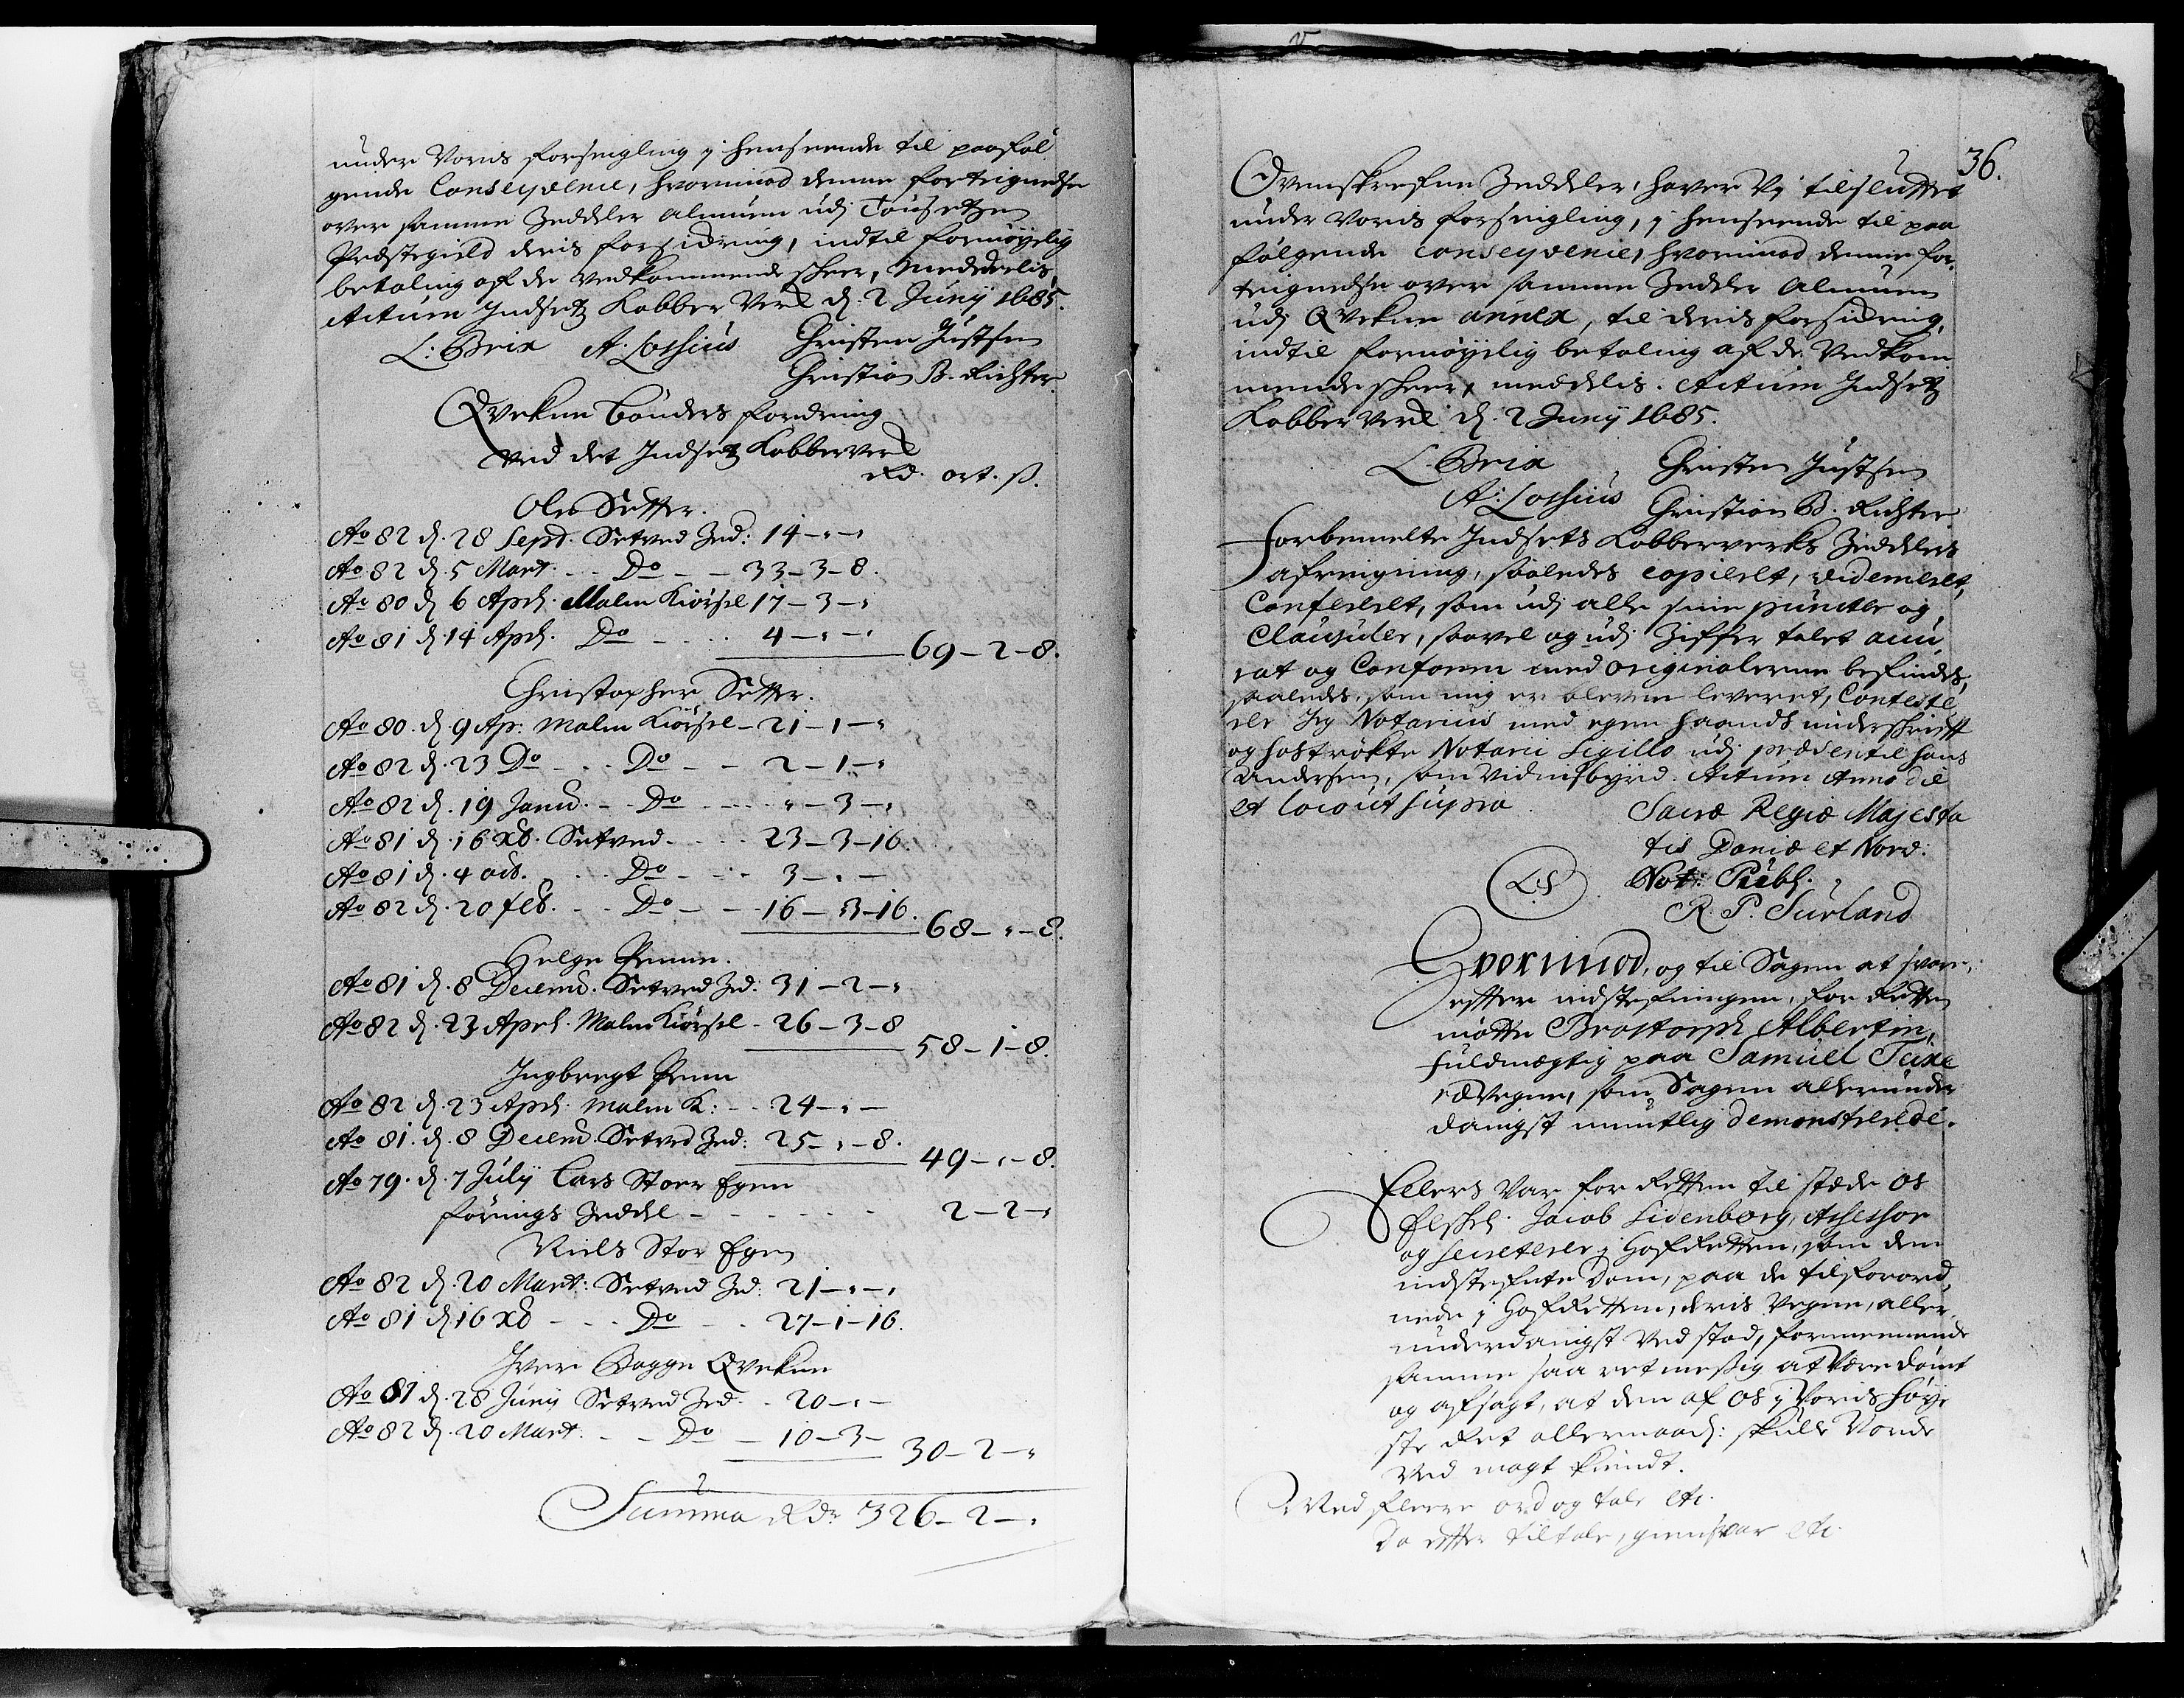 under Voris forseigling j henseende til paaføl
gende Conseqvence, hvorimod denne fortegnelse
over samme Zeddeler Almuen udj Tønsetten
Præstegield deris forsicring, indtil fornøyelig
betaling af de vedkommende scheer, meddeelis,
Actum Indsetz Kobber Verk d. 2 Junij 1685.
L: Brix A. Lossius Christen Justsen
Christian B. Richter
Qvekne bønders fordring
Ved det Indsetz Kobberverk
Rd. ort. s.
Ole Setter.
Ao 82 d. 28 Sept. Setved Zed: 14-"-"
Ao 82 d. 5 Mart: -- Do -- 33-3-8.
Ao 80 d 6 Apr. Malm Kiørsel 17-3-"
Ao 81 d. 14 Apr. Do -- 4-"-"
69-2-8.
Christopher Setter.
Ao 80. d. 9 Ap: Malm Kiørsel- 21-1-"
Ao 82 d. 23 Do - - Do - - 2-1-"
Ao 82 d. 19 Janu. -- Do ---- "-3-"
Ao 81 d. 16 Xb. Setved - - - 23-3-16.
Ao 81 d. 4 oct. - - Do - - - 3-"-
Ao 82 d. 20 feb. - - Do - - - 16-3-16.
68-"-8.
Helge
Ao 81 d. 8 Decemb. Setved Zed: 31-2-"
Ao 82 d. 23 April. Malm Kiørsel - 26-3-8
58-1-8.
Ingbregt
Ao 82 d. 23 Apr. Malm K: -- 24-"-
Ao 81. d. 8 Decemb. Setved Zed: 25-"-8.
49-"-8.
Ao 79. d. 7 Julij Lars Stoer Egen
førings Zeddel - - - - - - 2-2-"
Niels Stor Egen
Ao 82 d. 20 Mart: Setved Zed: 21-"-"
Ao 81 d 16 Xb - - - Do - - 27-1-16.
Iver Bagge Qvekne
Ao 81 d. 28 Junij Setved Zed. - 20-"-
Ao 82 d. 20 Mart. - - Do - 10-3-
30-2-"
Summa Rdr 326-2-"
36.
Ovenskrefne Zeddeler, haver Vj tilsluttet
under Voris forseigling, j henseende til paa
følgende conseqvence, hvorimod denne for,
teignelse over samme Zedler Almuen
udj Qvekne annex, til deris forsicring,
indtil fornøyelig betaling af de Vedkom
mende scheer, meddelis. Actum Indsetz
Kobber Verk d. 2 Junij 1685.
L. Brix Christen Justsen
A: Lossius Christian B. Richter
Forbemelte Indsets Kobberverks Zeddelers
afreigning, saaledes copieret, videmeret,
Confereret, som udj alle sine puncter og
Clausuler, saavel og udj Ziffer talet accu
rat og Conform med originalerne befindes,
saaledes, som mig er bleven leveret, Conteste
rer Jeg Notarius med egen haands underskrift
og hostrøkte Notarii Sigillo udj præsentz Hans
Andersen, som vidnisbyrd. Actum Anno die
et loco ut supra.
Sacræ Regiæ Majesta
tis Daniæ et Norv:
L.S Not: Publ.
R. P. Surland
Hvorimod, og til Sagen at svare,
effter indstefningen, for Retten
møtte Brostorph Albertin,
fuldmegtig paa Samuel Tuxe
Vegne, som Sagen allerunder
danigst mundtlig demonstrerede.
Ellers var for Retten til stæde os
elskel. Jacob Sidenborg, Assessor
og Secreterer j Hofretten, som den
indstefnte Dom, paa de tilforord,
nede j Hofretten, deris Vegne, aller
underdanigst Ved stod, formeenende
samme saa retmessig at Være dømt
og afsagt, at den af os j Voris høye
ste Ret allernaad: skulle Vorde
Ved magt kiendt.
Med fleere ord og tale etc.
Da effter tiltale, giensvar etc.